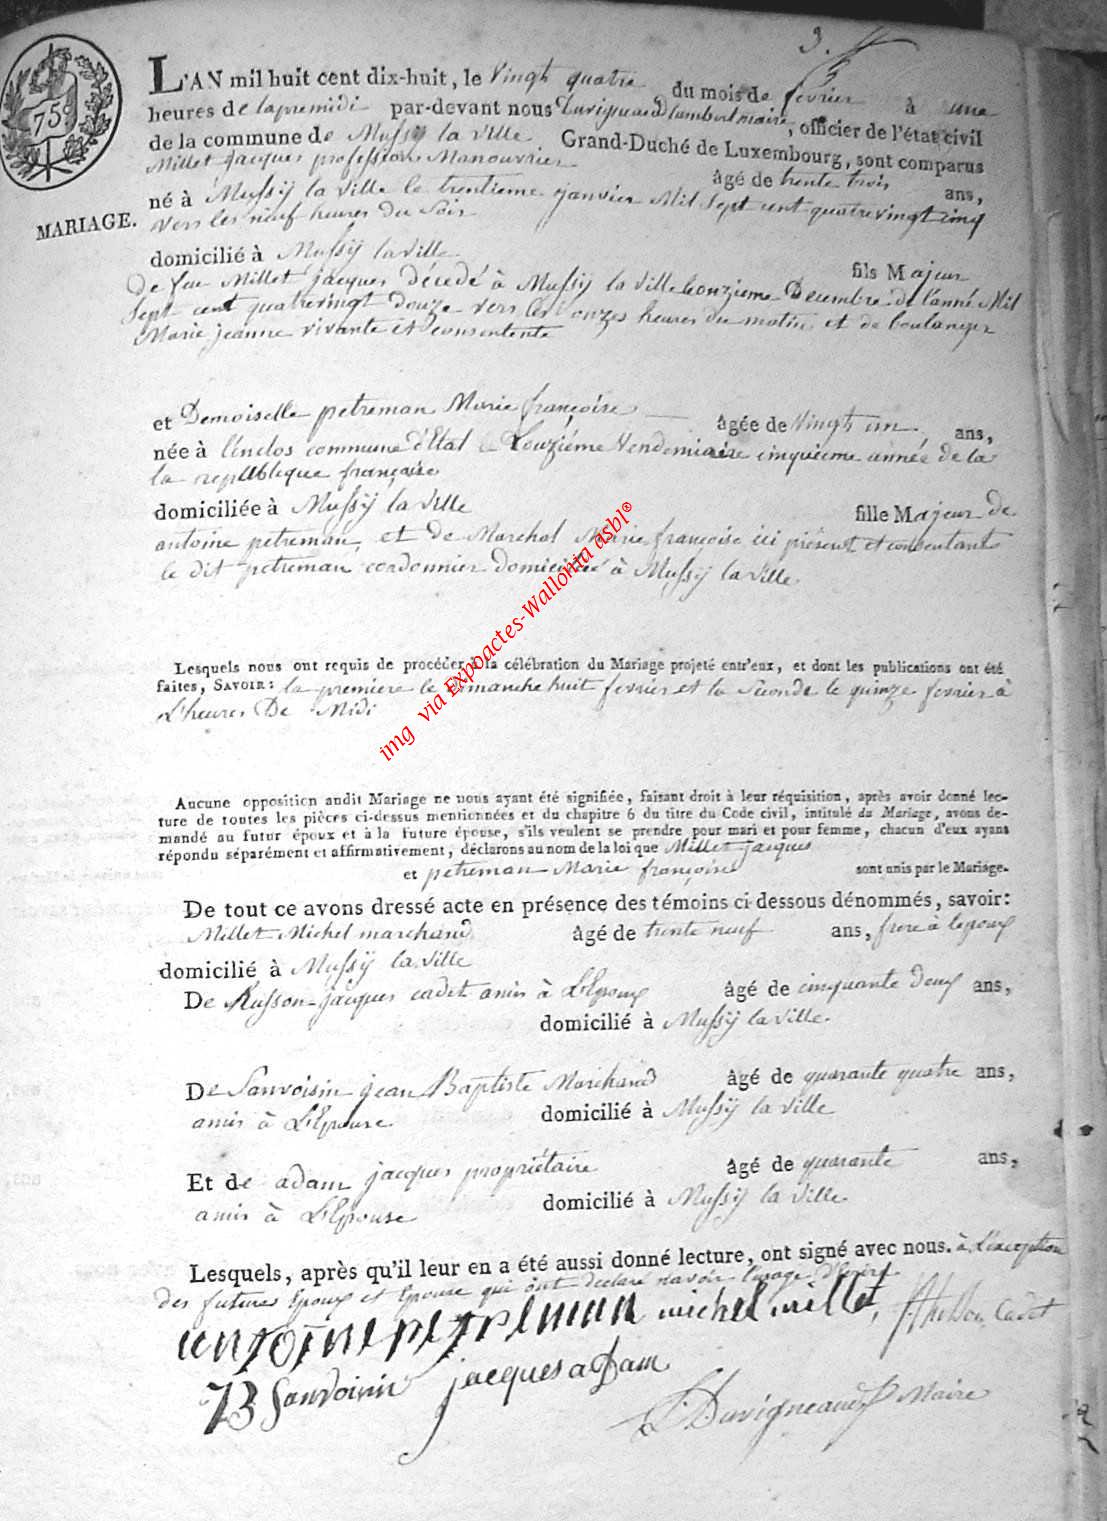 3.
75
MARIAGE.
L'AN mil huit cent dix-huit, le Vingt quatre du mois de fevrier à une
heures de lapremidi par-devant nous Duvigneaud lambert maire, officier de l'état civil
de la commune de Mussÿ la ville Grand-Duché de Luxembourg, sont comparus
Millet jacques profession Manouvrier âgé de trente trois ans,
né à Mussÿ la ville le trentieme janvier Mil Sept cent quatrevingt cinq
vers les neuf heures du Soir
domicilié à Mussÿ la ville fils Majeur
De feu Millet jacques décedé à Mussÿ la ville Decembre de l'anné Mil
Sept cent quatrevingt douze vers les onzes heures du matin et de boulanger
Marie jeanne vivante et consentente
et Demoiselle petreman Marie françoise âgée de Vingt un ans,
née à l'enclos commune d'Etal Vendemiaire cinquieme année de la
la republique française
domiciliée à Mussÿ la ville fille Majeur de
antoine petreman, et de Marchal Marie françoise ici présent et consentant
le dit petreman cordonnier domicilié à Mussÿ la ville
Lesquels nous ont requis de procéder à la célébration du Mariage projeté entr'eux, et dont les publications ont été
faites, SAVOIR: la premiere le dimanche huit fevrier et la Seconde le quinze fevrier à
L'heures De Midi
Aucune opposition audit Mariage ne nous ayant été signifiée, faisant droit à leur réquisition, après avoir donné lec-
ture de toutes les pièces ci-dessus mentionnées et du chapitre 6 du titre du Code civil, intitulé du Mariage, avons de-
mandé au futur époux et à la future épouse, s'ils veulent se prendre pour mari et pour femme, chacun d'eux ayant
répondu séparément et affirmativement, déclarons au nom de la loi que Millet jacques
et petreman Marie françoise sont unis par le Mariage.
De tout ce avons dressé acte en présence des témoins ci-dessous dénommés, savoir:
Millet Michel marchand âgé de trente neuf ans, frere à lepoux
domicilié à Mussÿ la ville
De Husson jacques cadet amis à L'Epoux âgé de cinquante deux ans,
domicilié à Mussÿ la ville.
De Sanvoisin jean Baptiste Marchand âgé de quarante quatre ans,
amis à L'Epouse domicilié à Mussÿ la ville
Et de adam jacques propriétaire âgé de quarante ans,
amis à L'Epouse domicilié à Mussÿ la ville
Lesquels, après qu'il leur en a été aussi donné lecture, ont signé avec nous. à L'exception
des futures Epoux et Epouse qui ont declaré navoir l'usage d'Ecrire
antoine petreman michel millet, Husson Cadet
JB Sanvoisin jacques adam
L. Duvigneaud Maire
img via Expoactes-Wallonia asbl®